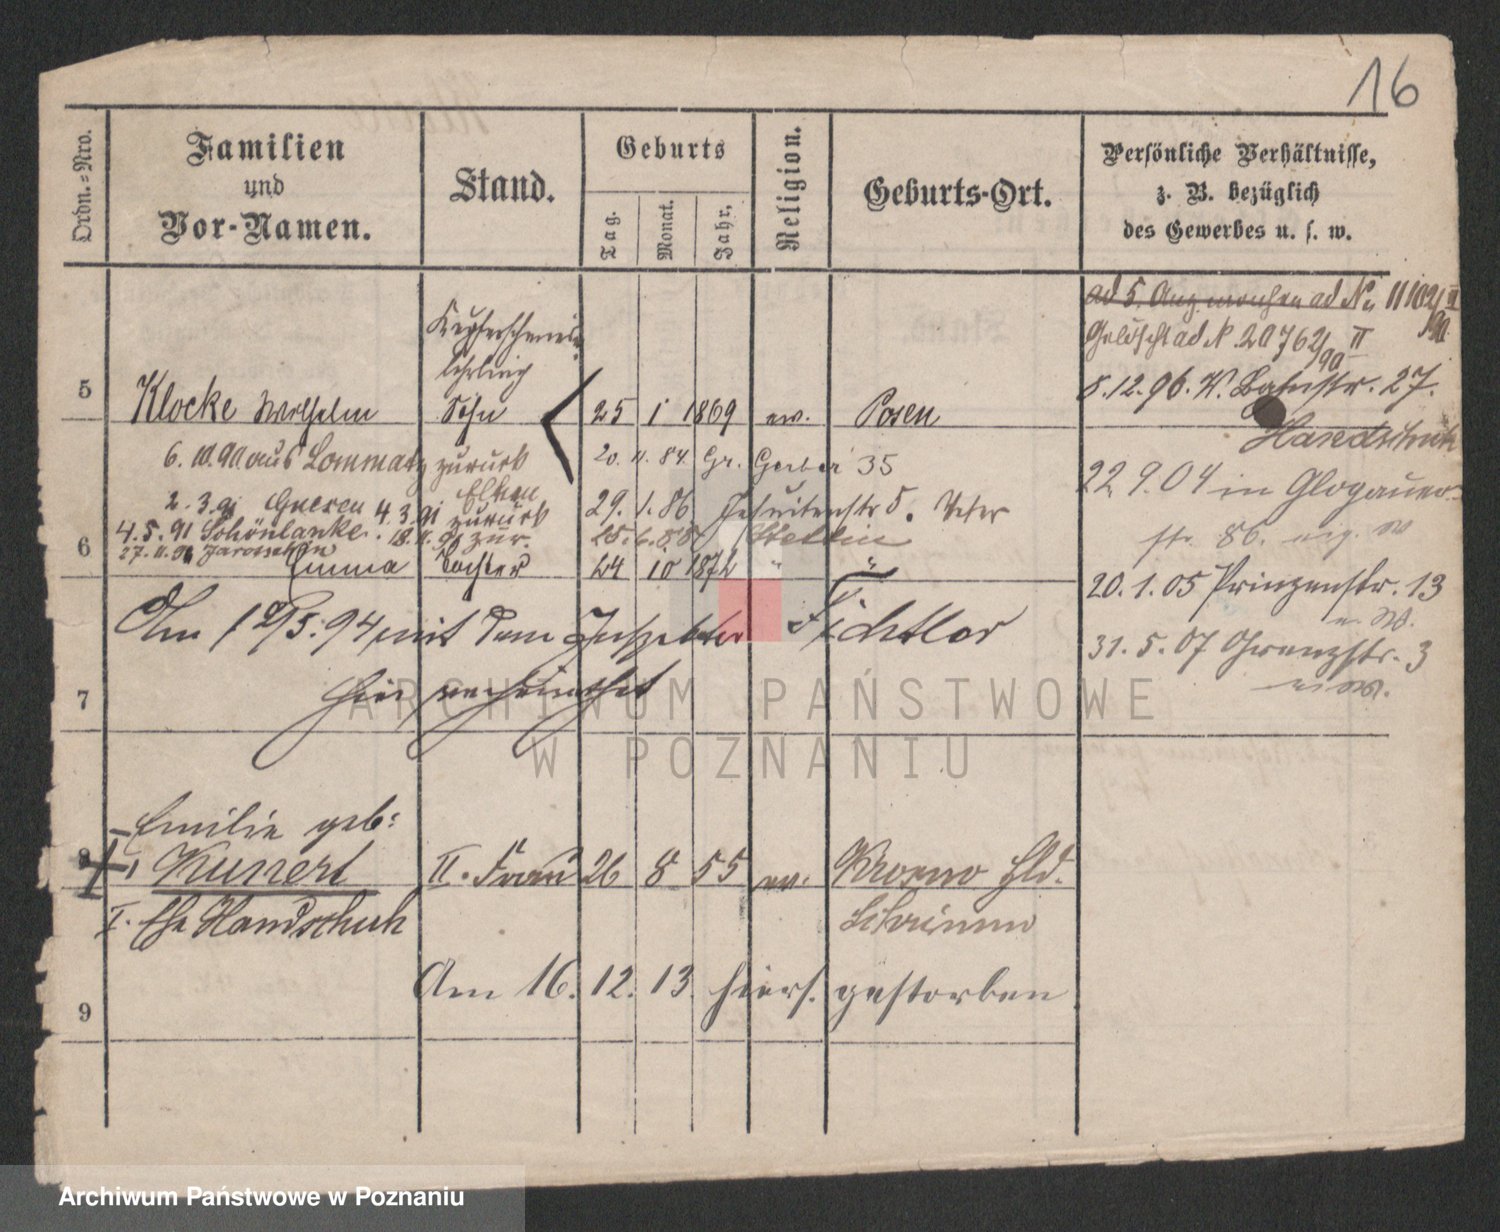 16
Ordn.-Nro.
Familien
und
Vor-Namen.
Stand.
Geburts
Tag.
Monat.
Jahr,
Religion.
Geburts-Ort.
Persönliche Verhältnisse,
z. B. bezüglich
des Gewerbes u. s. w.
ad 5. ad No 11102/90 II
Gelöscht ad N. 20762/90 II
8.12.96. W. Bahnstr. 27.
Handschuh
22 9. 04 in Glogauer-
str. 86. eig. W
20. 1. 05 Prinzenstr. 13
e. W.
31. 5. 07 Grenzstr. 3
e. W.
Kupferschmied-
lehrling
5 Klocke Wilhelm Sohn 25 1 1869 ev. Posen
6. 10. 90 aus Lommatz zurück 20. 11. 84 Gr. Gerber 35
2. 3. 91 Gnesen 4. 3. 91 zurück 29. 1. 86 Jesuitenstr 5. Vater
4. 5. 91 Schönlanke. 18. 11. 91 zur. 25. 6. 88 Stettin
27. 11. 91 Jarotschin
6 Emma Tochter 24 10 1872 " "
Am 12/5. 94 mit dem Fichtler
7 hier verheirathet
Emilie geb:
8 Kunert II. Frau 26 8 55 ev. Krosno Hld.
I. Ehe Handschuh Schrimm
Am 16. 12. 13. hiers. gestorben
9
ARCHIWUM PAŃSTWOWE
W POZNANIU
Archiwum Państwowe w Poznaniu